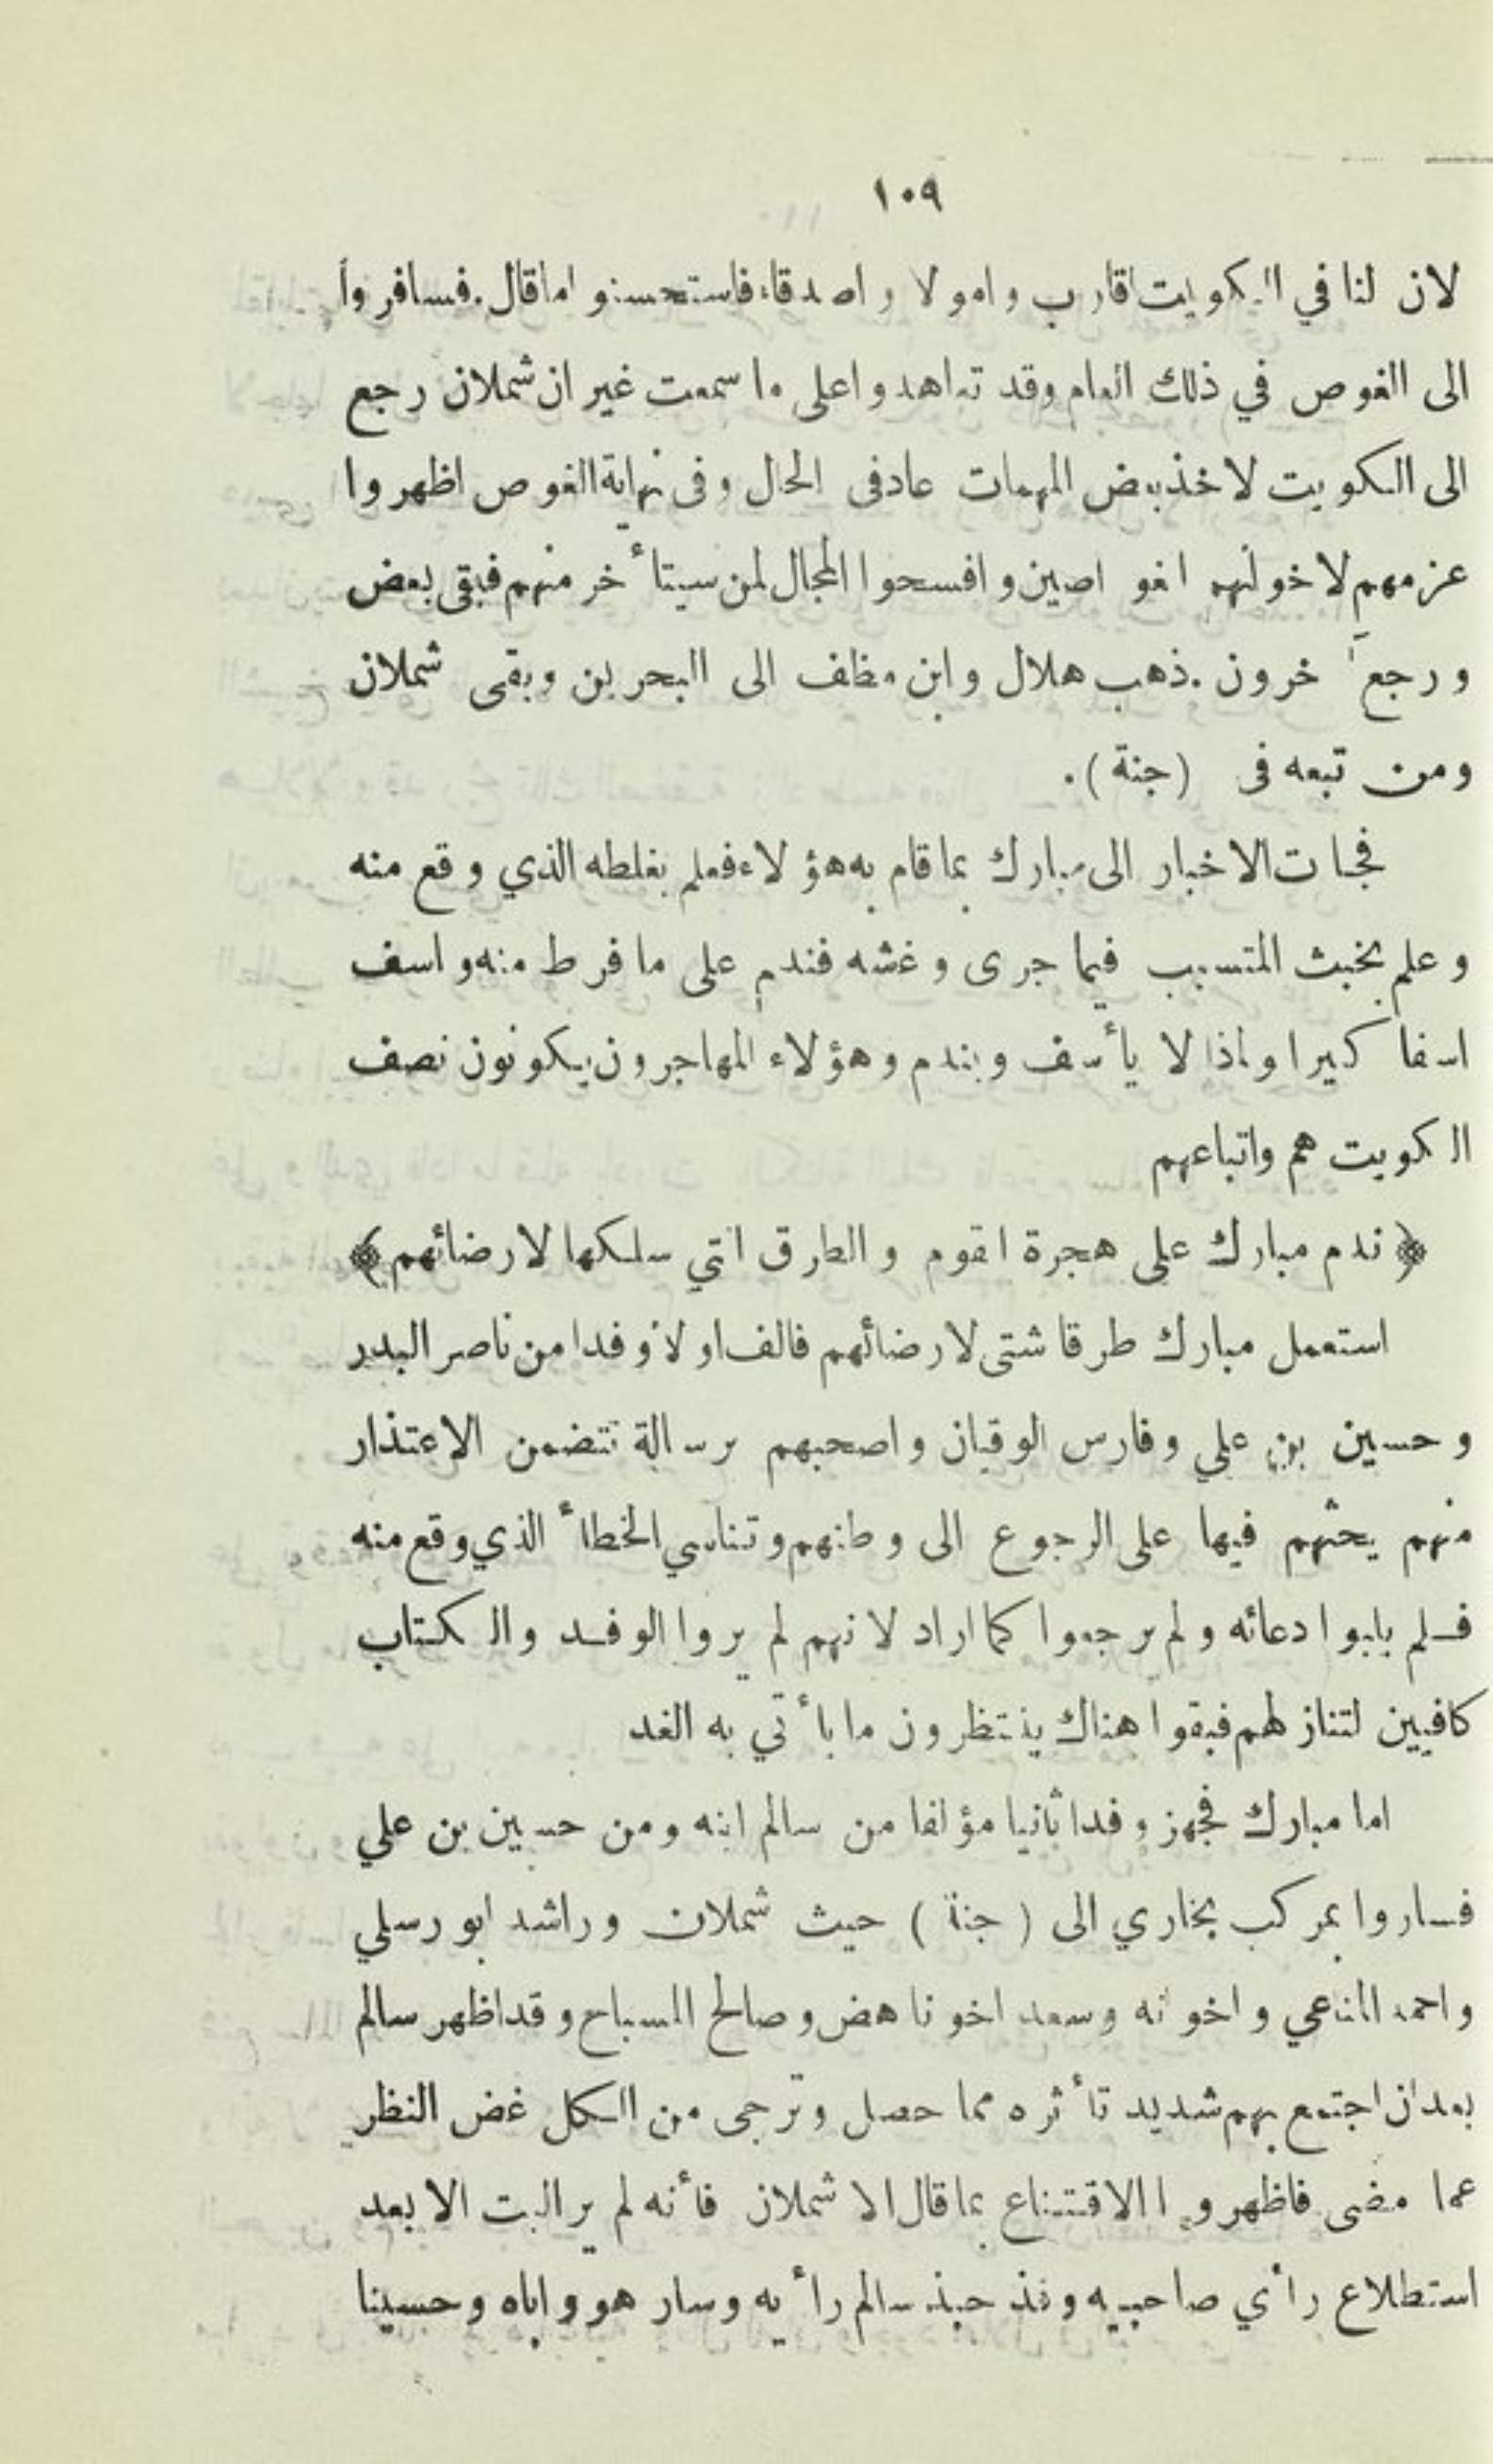 ١٠٩
لان لنا في الكويت اقارب وامولا واصدقاء فاستحسنو اماقال. فسافروا
الى الغوص في ذلك العام وقد تعاهدوا على ما سمعت غير ان شملان رجع
الى الكويت لاخذ بعض المهمات عاد فى الحال وفى نهاية الغوص اظهروا
عزمهم لاخوانهم الغواصين وافسحوا المجال لمن سيتأخر منهم فبقى بعض
ورجع آخرون. ذهب هلال وابن مظف الى البحرين وبقى شملان
ومن تبعه فى (جنة).
فجات الاخبار الى مبارك بما قام به هؤلاء فعلم بغلطه الذي وقع منه
وعلم بخبث المتسبب فيما جرى وغشه فندم على ما فرط منه واسف
اسفا كبيرا ولماذا لا يأسف ويندم وهؤلاء المهاجرون يكونون نصف
الكويت هم واتباعهم
﴿ ندم مبارك على هجرة القوم والطرق التي سلكها لارضائهم ﴾
استعمل مبارك طرقا شتى لارضائهم فالف اولا وفدا من ناصر البدر
وحسين بن علي وفارس الوقيان واصحبهم برسالة تتضمن الاعتذار
منهم يحثهم فيها على الرجوع الى وطنهم وتناسي الخطأ الذي وقع منه
فلم يلبوا دعائه ولم يرجعوا كما اراد لانهم لم يروا الوفد والكتاب
كافيين لتنازلهم فبقوا هناك ينتظرون ما يأتي به الغد
اما مبارك فجهز وفدا ثانيا مؤلفا من سالم ابنه ومن حسين بن علي
فساروا بمركب بخاري الى (جنة) حيث شملان وراشد ابو رسلي
واحمد المناعي واخوانه وسعد اخو ناهض وصالح المسباح وقد اظهر سالم
بعد ان اجتمع بهم شديد تأثره مما حصل وترجى من الكل غض النظر
عما مضى فاظهروا الاقتناع بما قال الا شملان فأنه لم ير البت الا بعد
استطلاع رأي صاحبيه وقد حبذ سالم رأيه وسار هو واياه وحسينا